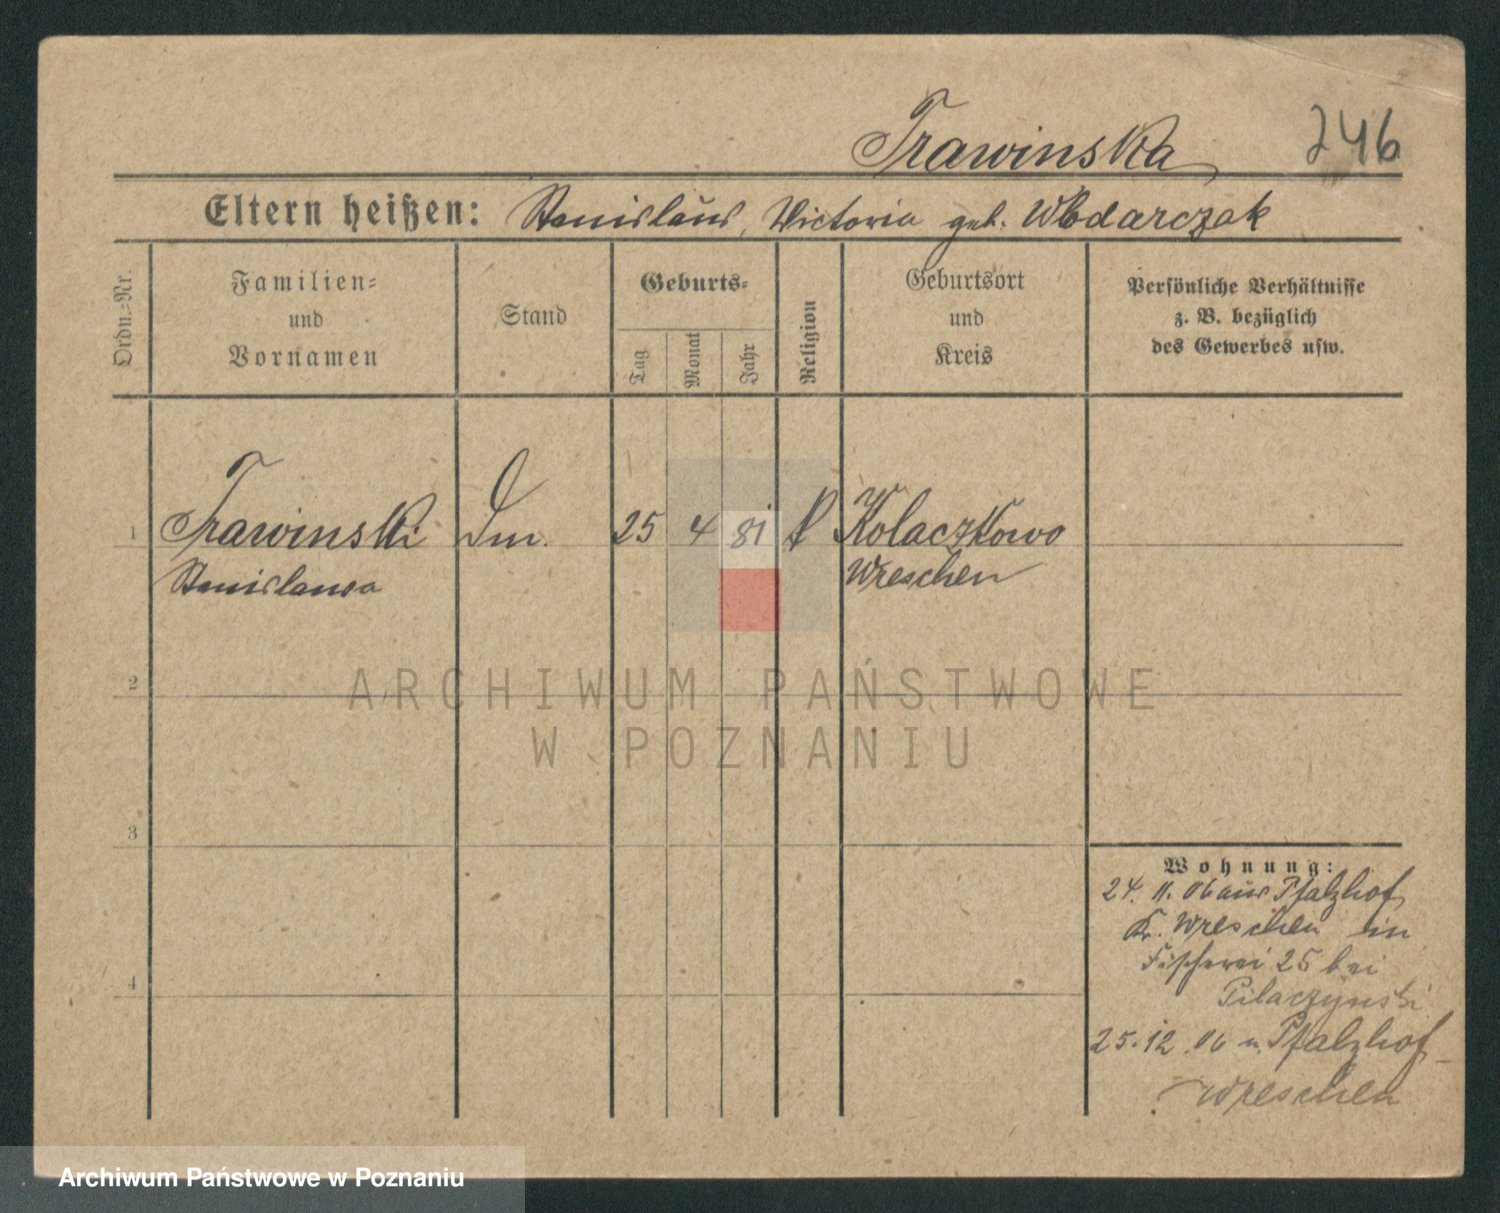 Trawinska 246
Eltern heißen: Stanislaus, Victoria geb. Wlodarczak
Ordn.-Nr.
Familien=
und
Vornamen
Stand
Geburts=
Tag
Monat
Jahr
Religion
Geburtsort
und
Kreis
Persönliche Verhältnisse
z. B. bezüglich
des Gewerbes usw.
1 Trawinski Dm. 25 4 81 k Kolaczkowo
Stanislawa Wreschen
2
ARCHIWUM PAŃSTWOWE
W POZNANIU
3
4
Wohnung:
24. 11. 06 aus Pfalzhof
Kr. Wreschen in
Fischerei 25 bei
Pilaczynski
25.12.06 n. Pfalzhof-
Wreschen
Archiwum Państwowe w Poznaniu